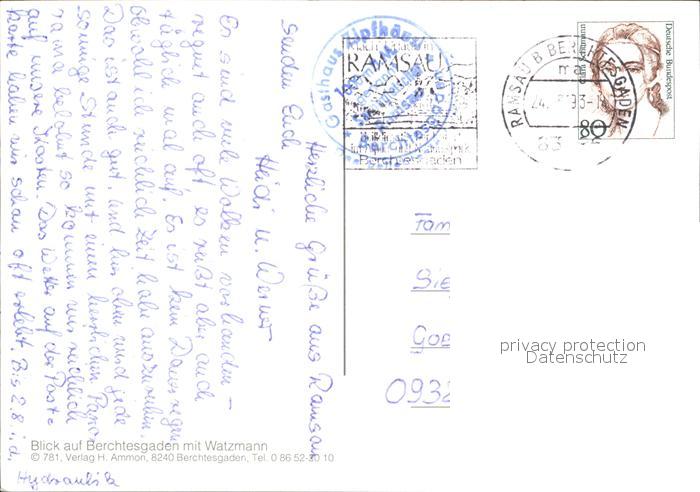 Herzliche Grüße aus Ramsau
senden Euch
Heidi u. Werner
Es sind viele Wolken vorhanden –
regnet auch oft es reißt aber auch
täglich mal auf. Es ist kein Dauerregen
obwohl er reichlich Zeit habe auszureichen.
Das ist auch gut, und hier oben wird jede
sonnige Stunde mit einem herrlichen
belohnt so kommen wir reichlich
auf unsere Kosten. Das Wetter auf der Post-
karte haben wir schon oft erlebt. Bis 2.8. i. d.
Hydraulik
Gasthaus Zipfhäusl
RAMSAU
Berchtesgaden
RAMSAU B BERCHTESGADEN
Deutsche Bundespost
Clara Schumann
80
Fam
Sie
Goe
0932
privacy protection
Datenschutz
Blick auf Berchtesgaden mit Watzmann
© 781, Verlag H. Ammon, 8240 Berchtesgaden, Tel. 0 86 52-30 10